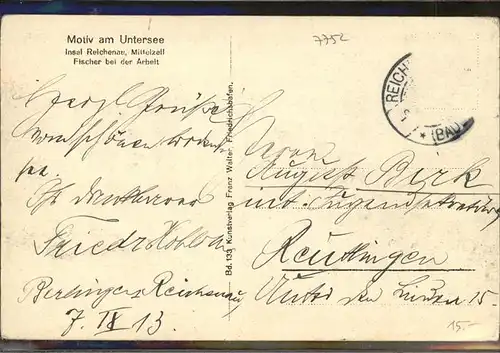 Motiv am Untersee
Insel Reichenau, Mittelzell
Fischer bei der Arbeit
7752
REICH
(BAD
Herzl. Grüße
vom schönen Boden
see.
Ihr dankbarer
Friedr.
Reichenau,
7. IX 13.
Bd. 133 Kunstverlag Franz Walter, Friedrichshafen.
Herrn
August Berk
Reutlingen
Unter den Linden 15
15.-